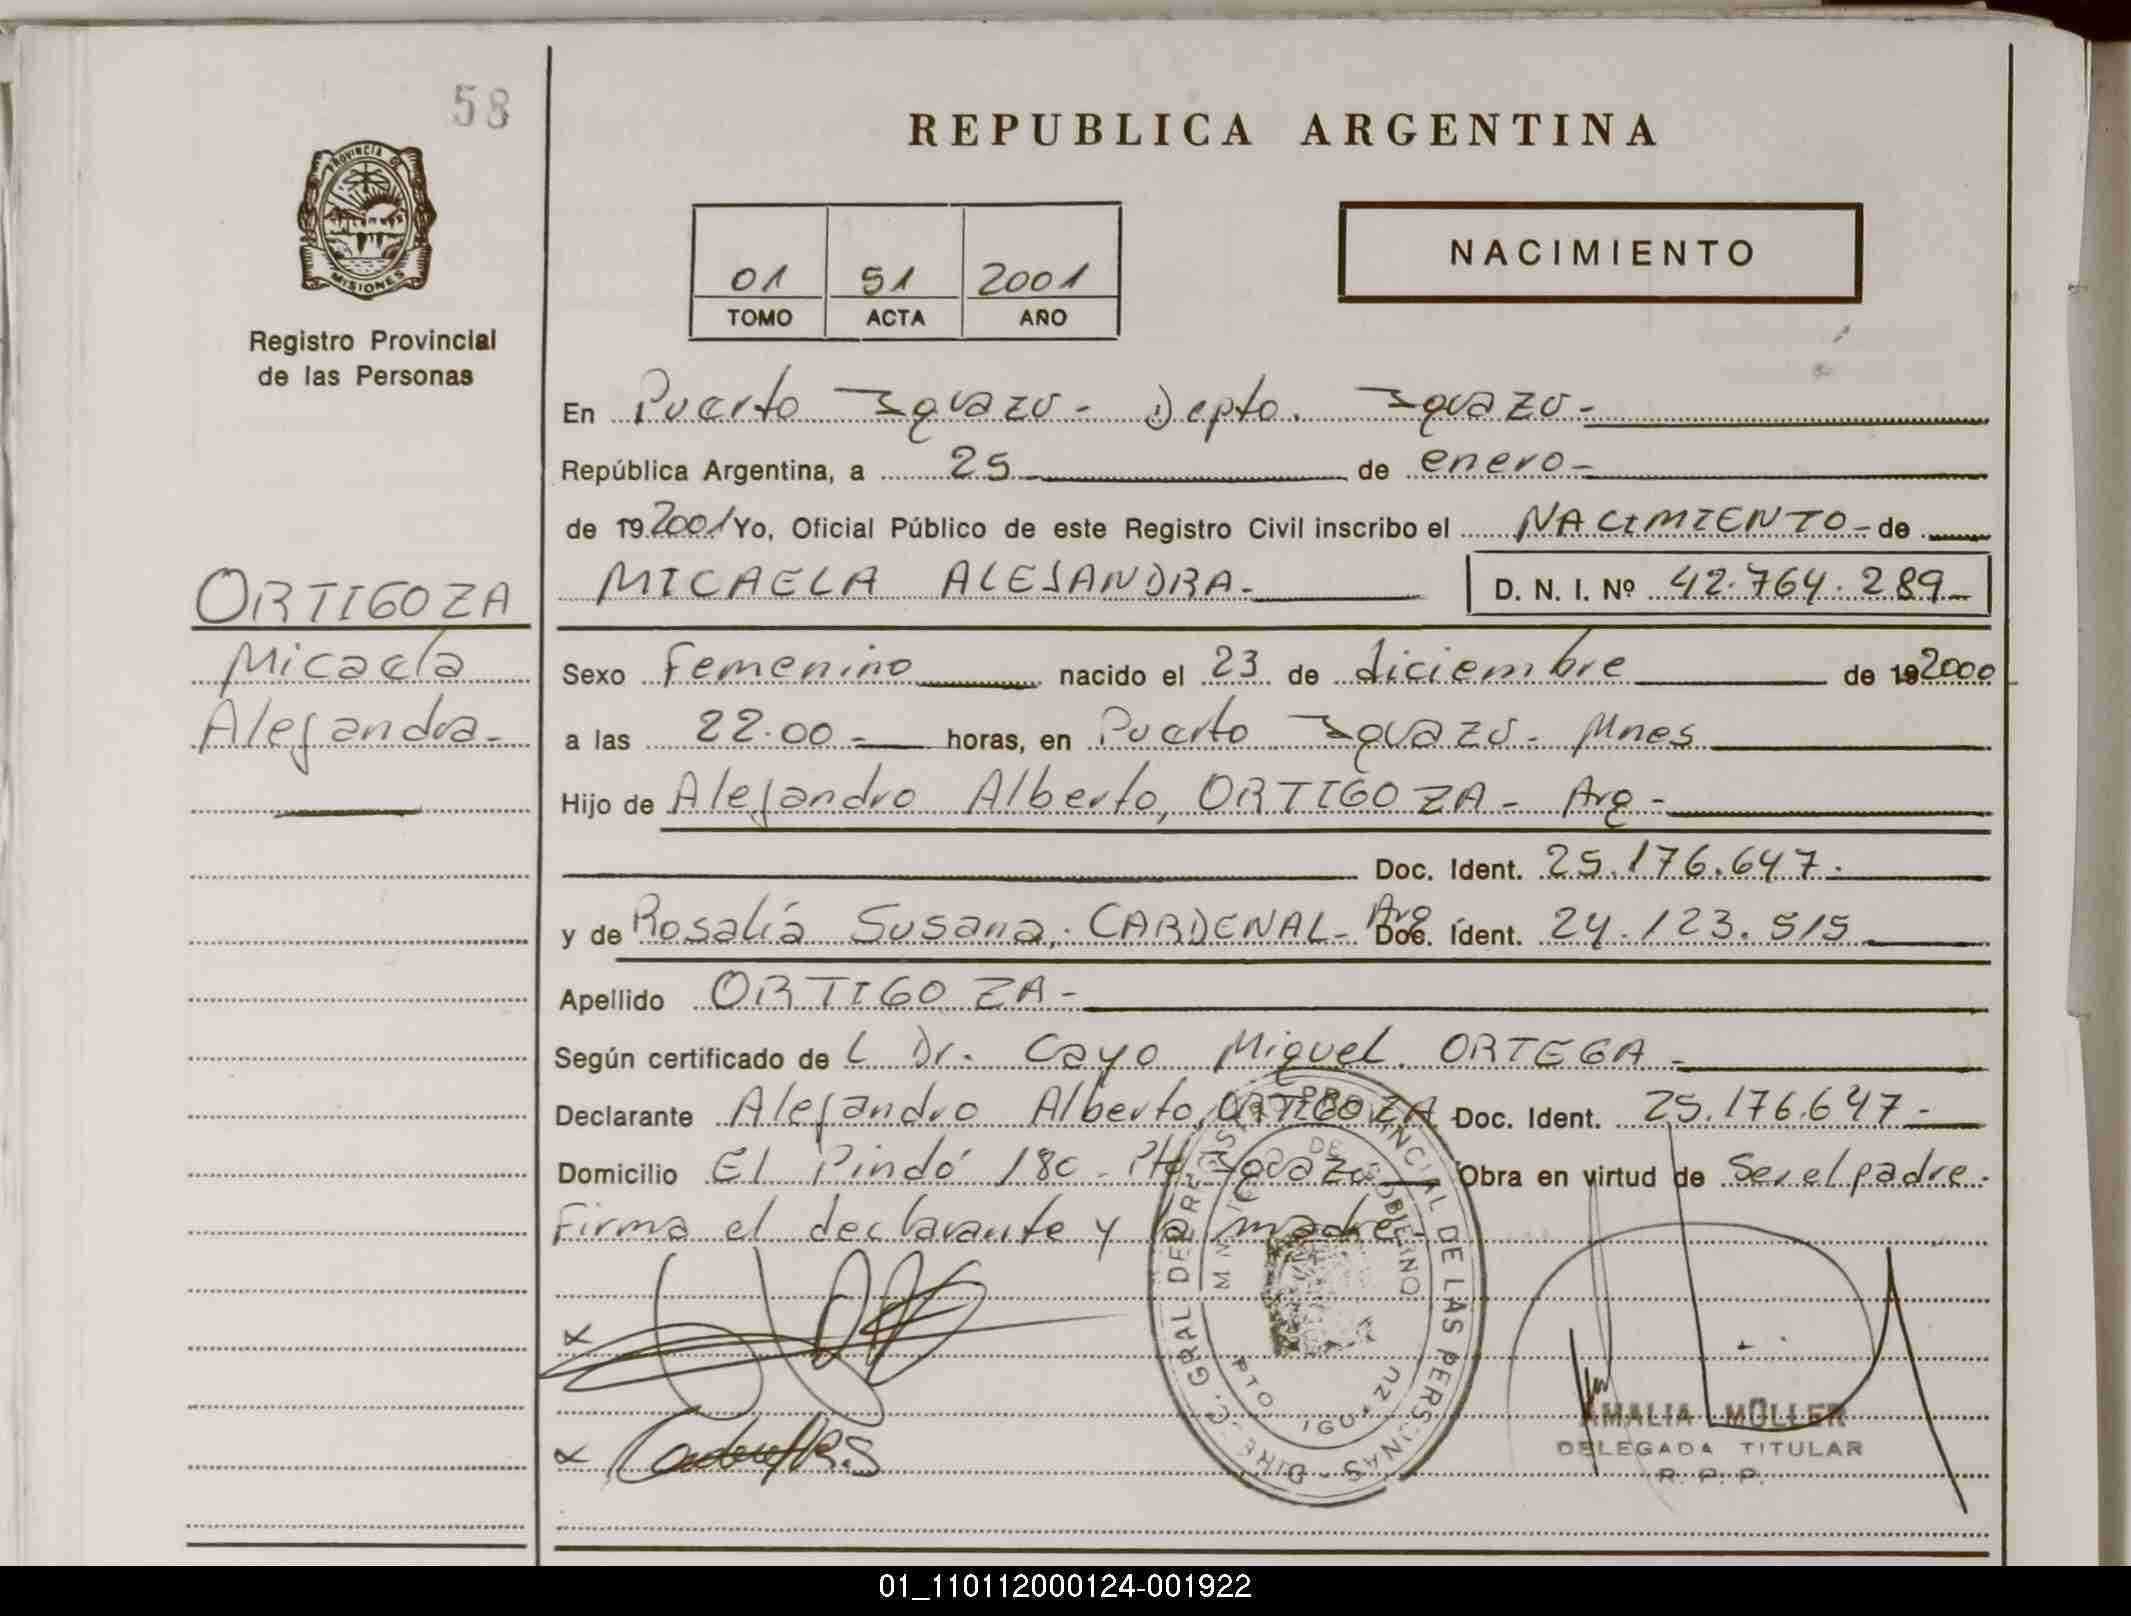 58
PROVINCIA DE
MISIONES
Registro Provincial
de las Personas
ORTIGOZA
Micaela
Alejandra-
REPUBLICA ARGENTINA
01 51 2001
TOMO ACTA AÑO
NACIMIENTO
En Puerto Iguazú- Depto. Iguazú-
República Argentina, a 25 de enero-
de 192001 Yo, Oficial Público de este Registro Civil inscribo el NACIMIENTO- de
MICAELA ALEJANDRA- D. N. I. Nº 42.764.289-
Sexo Femenino nacido el 23 de diciembre de 192000
a las 22.00- horas, en Puerto Iguazú- Mnes
Hijo de Alejandro Alberto, ORTIGOZA- Arg-
Doc. Ident. 25.176.647.
y de Rosalía Susana, CARDENAL- Arg Doc. Ident. 24.123.515
Apellido ORTIGOZA-
Según certificado de L Dr. Cayo Miguel ORTEGA-
Declarante Alejandro Alberto, ORTIGOZA Doc. Ident. 25.176.647-
Domicilio El Pindó 180- Iguazú Obra en virtud de Ser el padre.
Firma el declarante y la madre.
DIREC. GRAL. DE REGISTRO PROVINCIAL DE LAS PERSONAS
DE GOBIERNO
PTO IGUAZU
AMALIA MÜLLER
DELEGADA TITULAR
R. P. P.
01_110112000124-001922